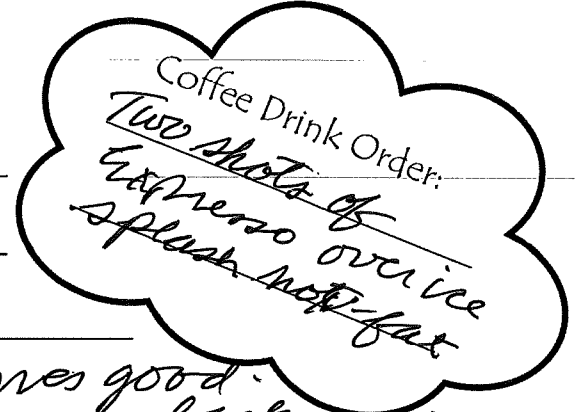 Coffee Drink Order:
Two shots of
Expresso over ice
splash not-fat
good.